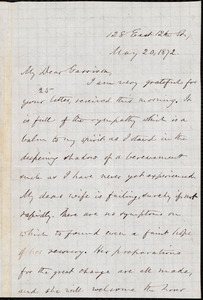 128 East 12th St.,
May 20, 1872.
My Dear Garrison,
I am very grateful for
25
your letter, received this morning. It
is full of the sympathy which is a
balm to my spirit as I stand in the
deepening shadow of a bereavement
such as I have never yet experienced.
My dear wife is failing, surely if not
rapidly. There are no symptoms on
which to found even a faint hope
of her recovery. Her preparations
for the great change are all made,
and she will welcome the hour